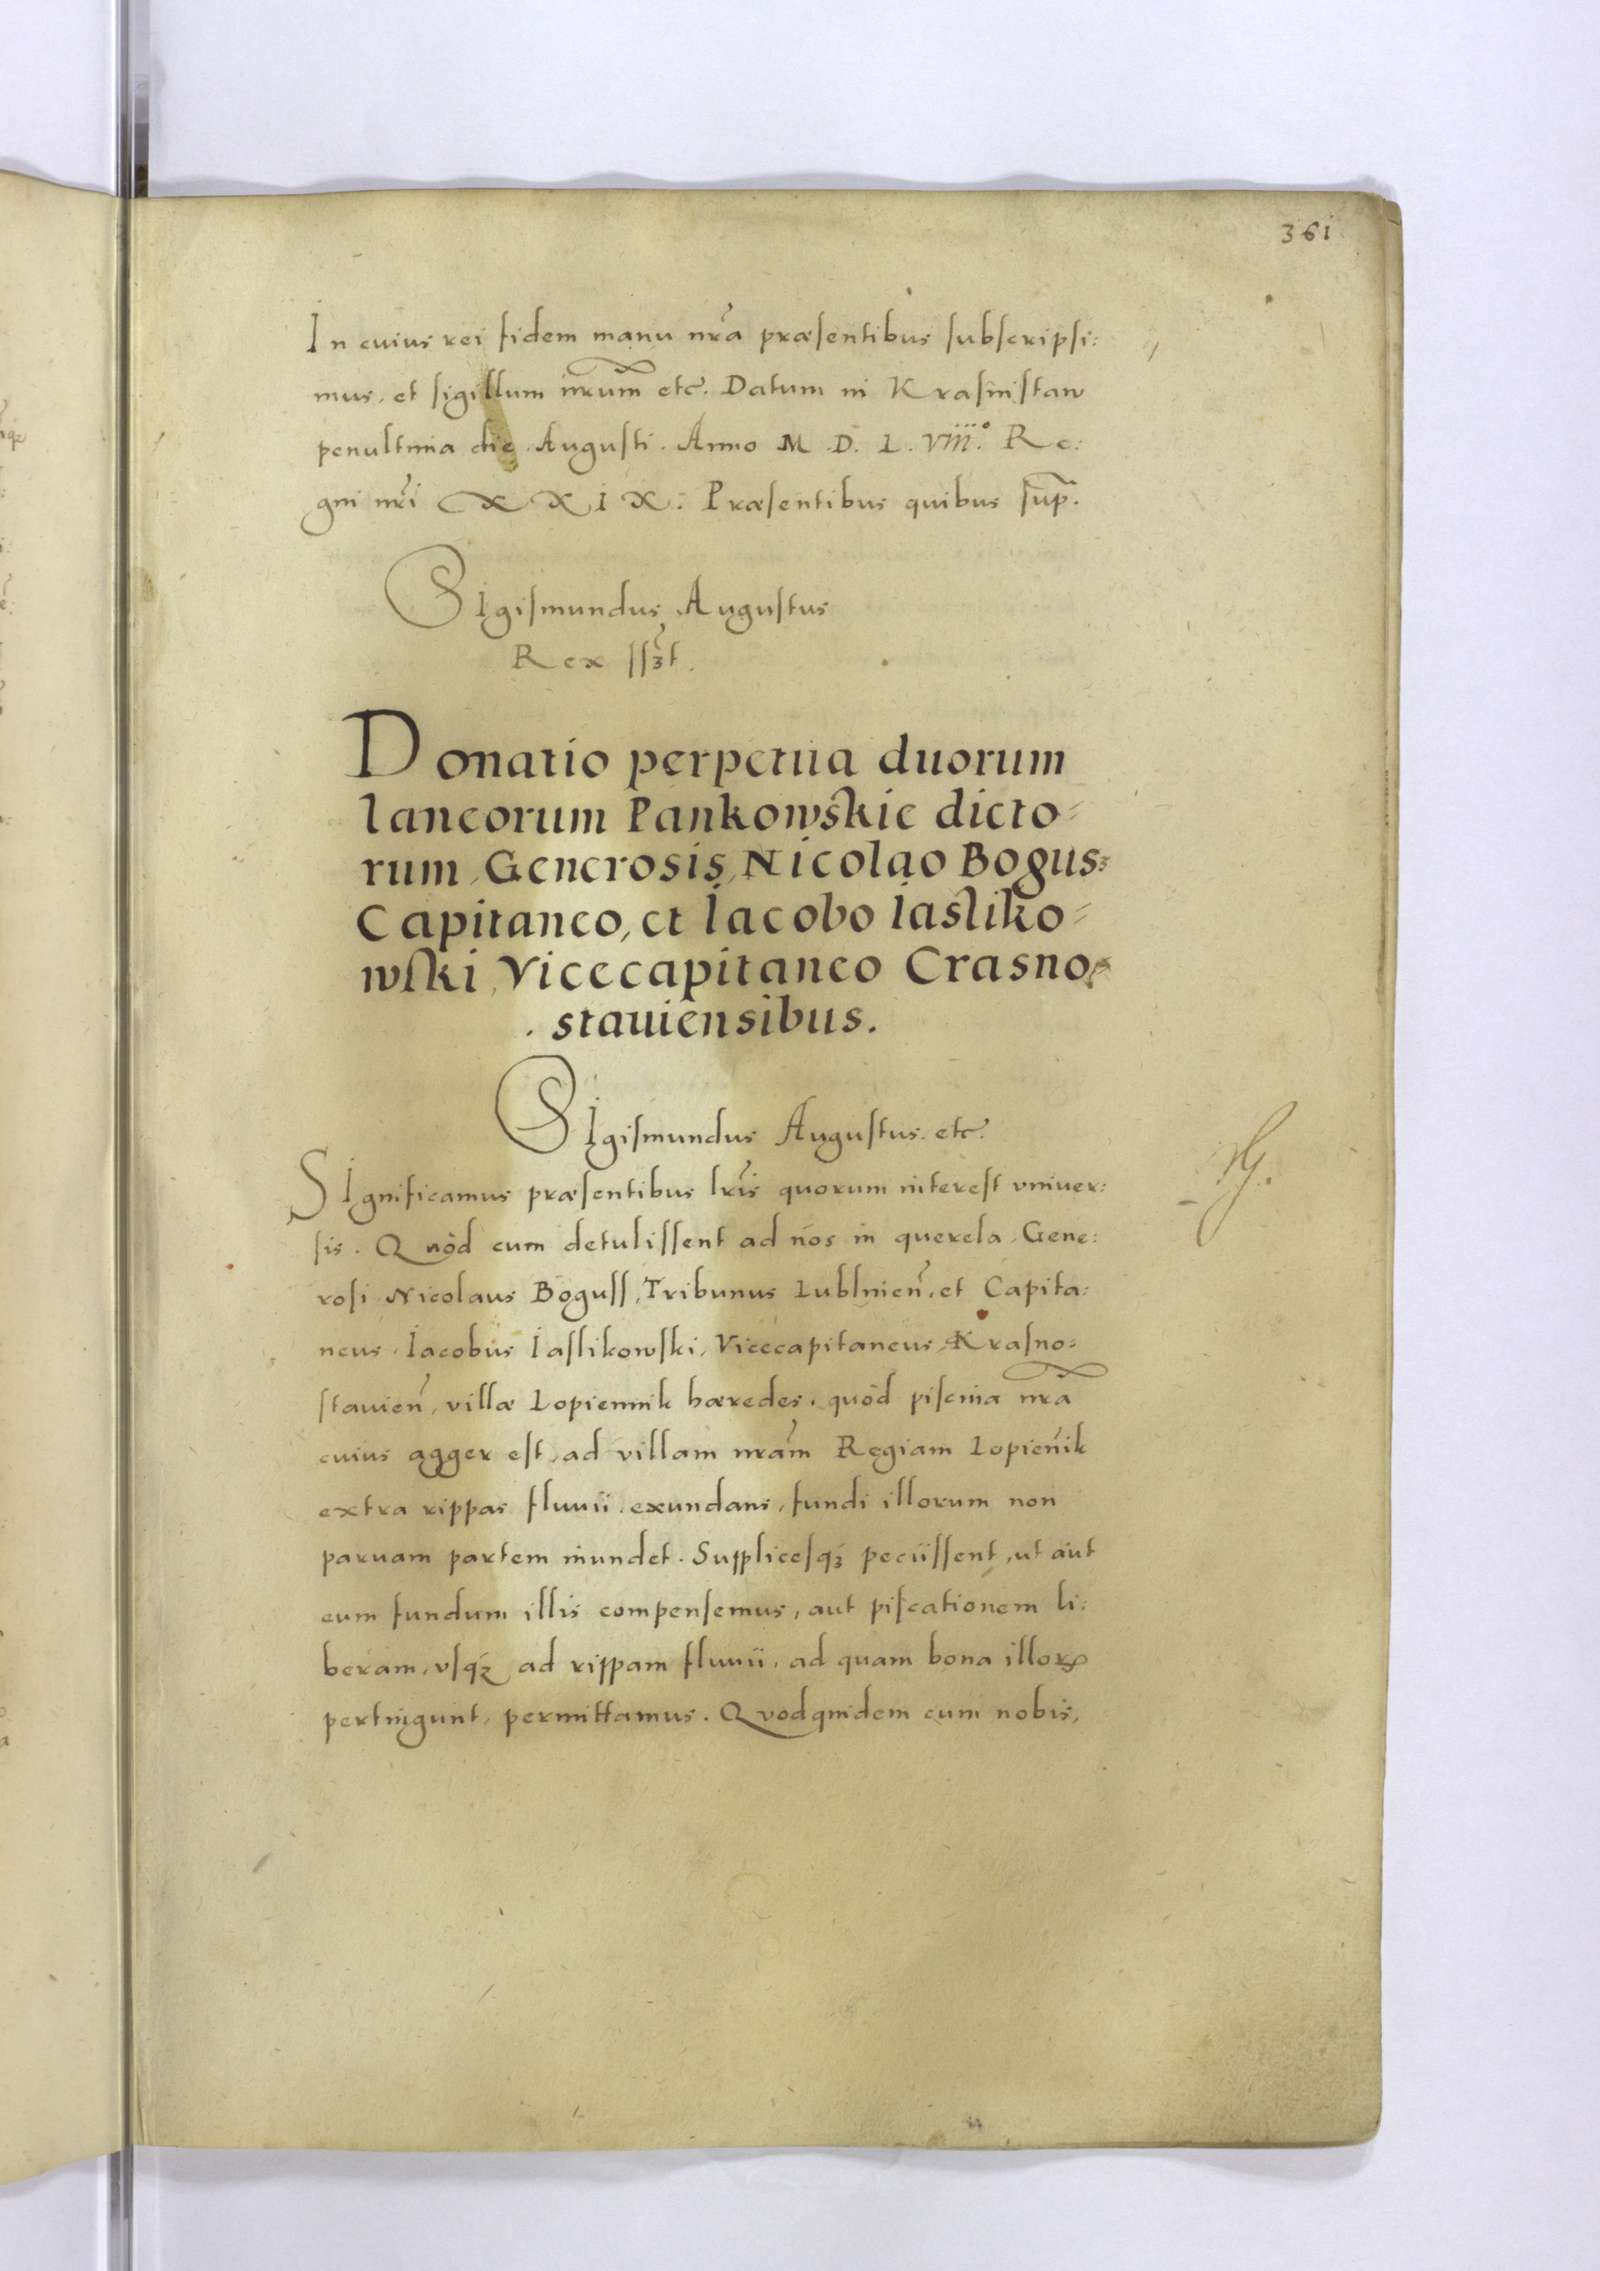 361
In cuius rei fidem manu nr̃a præsentibus subscripsi:
mus, et sigillum nr̃um etc. Datum in Krasinistaw
penultima die Augusti. Anno M.D.L.VIII.º Re:
gni nr̃i XXIX. Præsentibus quibus sup̃.
SIgismundus Augustus
Rex sszt.
Donatio perpetua duorum
laneorum Pankowskie dicto=
rum, Generosis, Nicolao Bogus:
Capitaneo, et Iacobo Iasliko=
wski, Vicecapitaneo Crasno
. stauiensibus.
SIgismundus Augustus. etc.
SIgnificamus præsentibus lr̃is quorum interest vniuer:
sis. Quòd cum detulissent ad nos in querela, Gene:
rosi Nicolaus Boguss, Tribunus Lublinieñ, et Capita:
neus, Iacobus Iaslikowski, Vicecapitaneus, Krasno=
stauieñ, villæ Lopiennik hæredes, quòd piscina nr̃a
cuius agger est, ad villam nr̃am Regiam Lopieñik
extra rippas fluuii exundans, fundi illorum non
paruam partem inundet. Supplicesqꝫ peciissent, ut aut
eum fundum illis compensemus, aut piscationem li:
beram, vsqꝫ ad rippam fluuii, ad quam bona illoꝝ
pertingunt, permittamus. Quodquidem cum nobis,